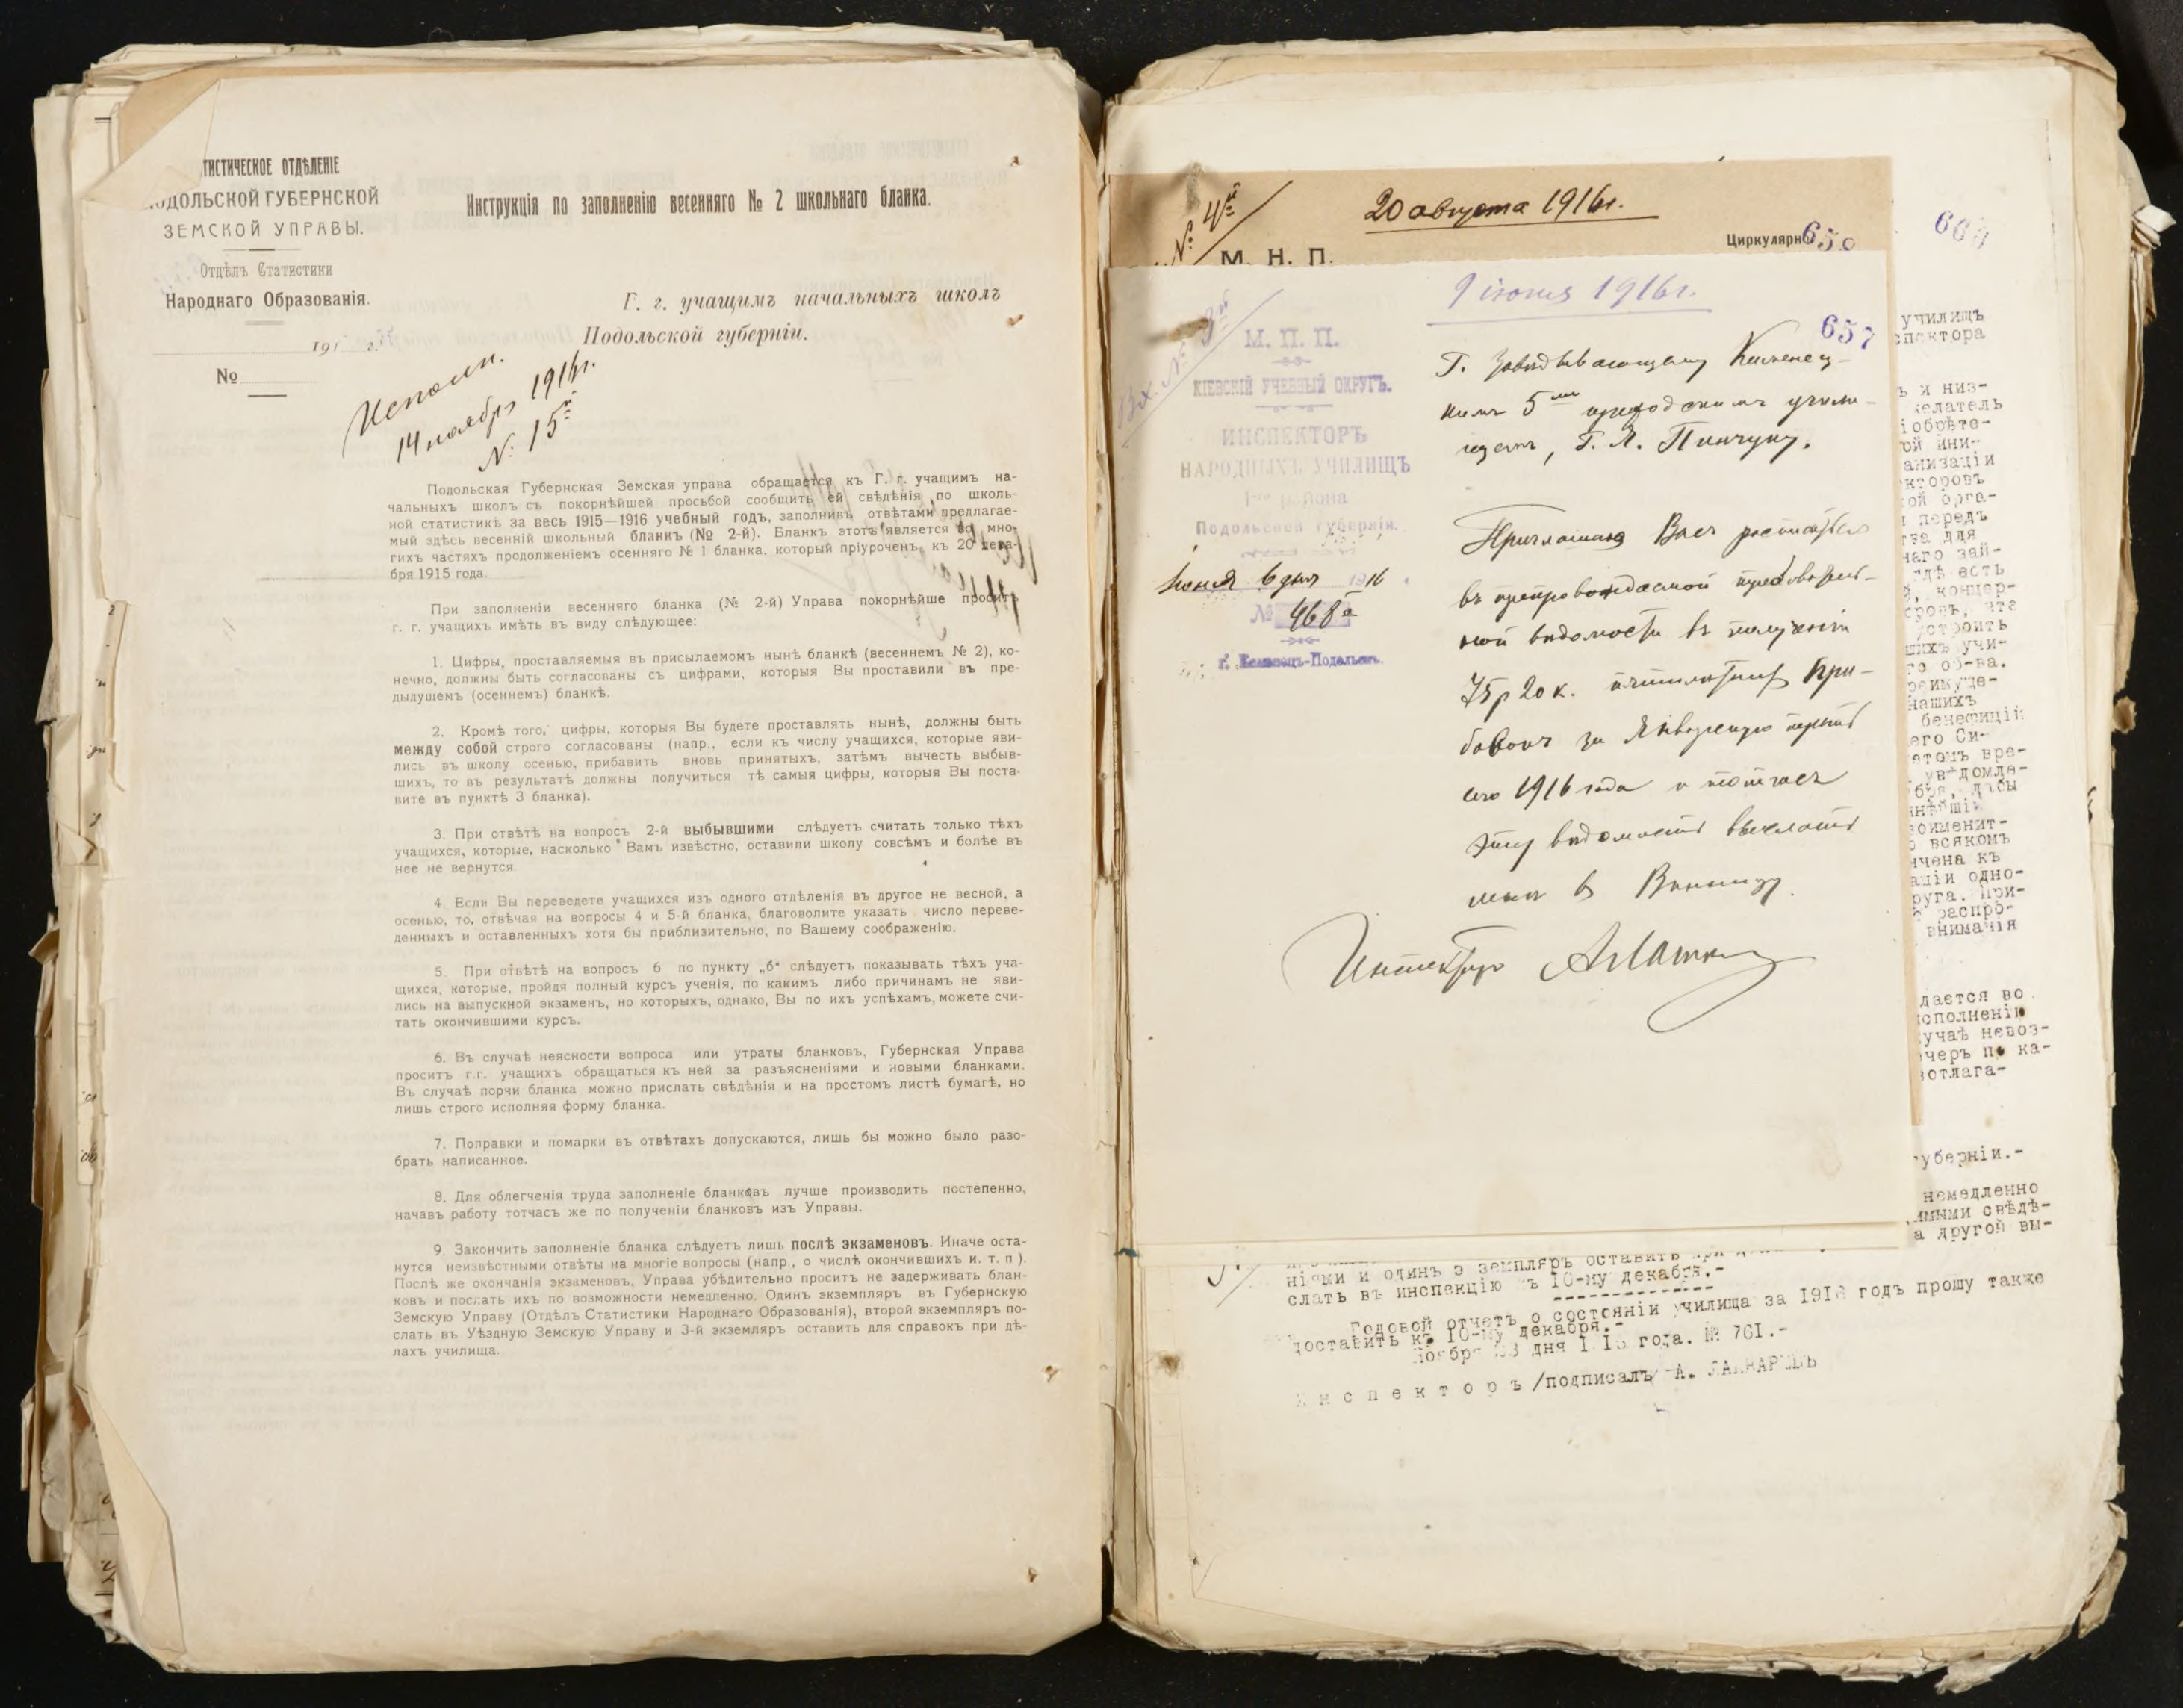 ТИСТИЧЕСКОЕ ОТДѢЛЕНІЕ
ОДОЛЬСКОЙ ГУБЕРНСКОЙ
ЗЕМСКОЙ УПРАВЫ.
Отдѣлъ Статистики
Народнаго Образованія.
191 г.
№
Инструкція по заполненію весенняго № 2 школьнаго бланка.
Г. г. учащимъ начальныхъ школъ
Подольской губерніи.
Исполн.
14 ноября 1916г.
№ 15й
Подольская Губернская Земская управа обращается къ Г. г. учащимъ на-
чальныхъ школъ съ покорнѣйшей просьбой сообщить ей свѣдѣнія по школь-
ной статистикѣ за весь 1915—1916 учебный годъ, заполнивъ отвѣтами предлагае-
мый здѣсь весенній школьный бланкъ (№ 2-й). Бланкъ этотъ является во мно-
гихъ частяхъ продолженіемъ осенняго № 1 бланка, который пріуроченъ къ 20 дека-
бря 1915 года.
При заполненіи весенняго бланка (№ 2-й) Управа покорнѣйше проситъ
г. г. учащихъ имѣть въ виду слѣдующее:
1. Цифры, проставляемыя въ присылаемомъ нынѣ бланкѣ (весеннемъ № 2), ко-
нечно, должны быть согласованы съ цифрами, которыя Вы проставили въ пре-
дыдущемъ (осеннемъ) бланкѣ.
2. Кромѣ того, цифры, которыя Вы будете проставлять нынѣ, должны быть
между собой строго согласованы (напр., если къ числу учащихся, которые яви-
лись въ школу осенью, прибавить вновь принятыхъ, затѣмъ вычесть выбыв-
шихъ, то въ результатѣ должны получиться тѣ самыя цифры, которыя Вы поста-
вите въ пунктѣ 3 бланка).
3. При отвѣтѣ на вопросъ 2-й выбывшими слѣдуетъ считать только тѣхъ
учащихся, которые, насколько Вамъ извѣстно, оставили школу совсѣмъ и болѣе въ
нее не вернутся.
4. Если Вы переведете учащихся изъ одного отдѣленія въ другое не весной, а
осенью, то, отвѣчая на вопросы 4 и 5-й бланка, благоволите указать число переве-
денныхъ и оставленныхъ хотя бы приблизительно, по Вашему соображенію.
5. При отвѣтѣ на вопросъ 6 по пункту „б“ слѣдуетъ показывать тѣхъ уча-
щихся, которые, пройдя полный курсъ ученія, по какимъ либо причинамъ не яви-
лись на выпускной экзаменъ, но которыхъ, однако, Вы по ихъ успѣхамъ, можете счи-
тать окончившими курсъ.
6. Въ случаѣ неясности вопроса или утраты бланковъ, Губернская Управа
проситъ г.г. учащихъ обращаться къ ней за разъясненіями и новыми бланками.
Въ случаѣ порчи бланка можно прислать свѣдѣнія и на простомъ листѣ бумагѣ, но
лишь строго исполняя форму бланка.
7. Поправки и помарки въ отвѣтахъ допускаются, лишь бы можно было разо-
брать написанное.
8. Для облегченія труда заполненіе бланковъ лучше производить постепенно,
начавъ работу тотчасъ же по полученіи бланковъ изъ Управы.
9. Закончить заполненіе бланка слѣдуетъ лишь послѣ экзаменовъ. Иначе оста-
нутся неизвѣстными отвѣты на многіе вопросы (напр., о числѣ окончившихъ и. т. п.).
Послѣ же окончанія экзаменовъ, Управа убѣдительно проситъ не задерживать блан-
ковъ и послать ихъ по возможности немедленно. Одинъ экземпляръ въ Губернскую
Земскую Управу (Отдѣлъ Статистики Народнаго Образованія), второй экземпляръ по-
слать въ Уѣздную Земскую Управу и 3-й экземляръ оставить для справокъ при дѣ-
лахъ училища.
№ 4й
20 августа 1916г.
М. Н. П.
Циркулярно
Вх. № 3й
9 іюня 1916г.
657
М. Н. П.
КІЕВСКІЙ УЧЕБНЫЙ ОКРУГЪ.
ИНСПЕКТОРЪ
НАРОДНЫХЪ УЧИЛИЩЪ
1го района
Подольской губерніи.
Іюня 6 дня 1916
№ 468
г. Каменецъ-Подольскъ.
Г. Завѣдывающему Каменец-
кимъ 5мъ приходскимъ учили-
щемъ, Г. Л. Пинчуку.
Приглашаю Васъ расписаться
въ препровождаемой требователь-
ной вѣдомости въ полученіи
75р 20к. пятилѣтнихъ при-
бавокъ за Январскую треть
сего 1916 года и тотчасъ
эту вѣдомость выслать
мнѣ въ Винницу.
Инспекторъ
училищъ
спектора
ь и низ-
желатель
іобрѣте-
ой ини-
анизаціи
кторовъ
ой орга-
передъ
тва для
наго зай-
гдѣ есть
концер-
устроить
шихъ учи-
го об-ва.
реимуще-
нашихъ
бенефицій
его Си-
этомъ вре-
увѣдомле-
бря, дабы
нѣйшій
оименит-
о всякомъ
ичена къ
аціи одно-
руга. При-
распро-
вниманія
дается во
исполненіи
учаѣ невоз-
черъ по ка-
зотлага-
уберніи.-
немедленно
имыми свѣдѣ-
а другой вы-
ніями и одинъ э земпляръ оставить при
слать въ инспекцію ъ 10-му декабря.-
Годовой отчетъ о состояніи училища за 1916 годъ прошу также
доставить къ 10-му декабря.-
ноября дня года. № 761.-
Инспекторъ /подписалъ А.